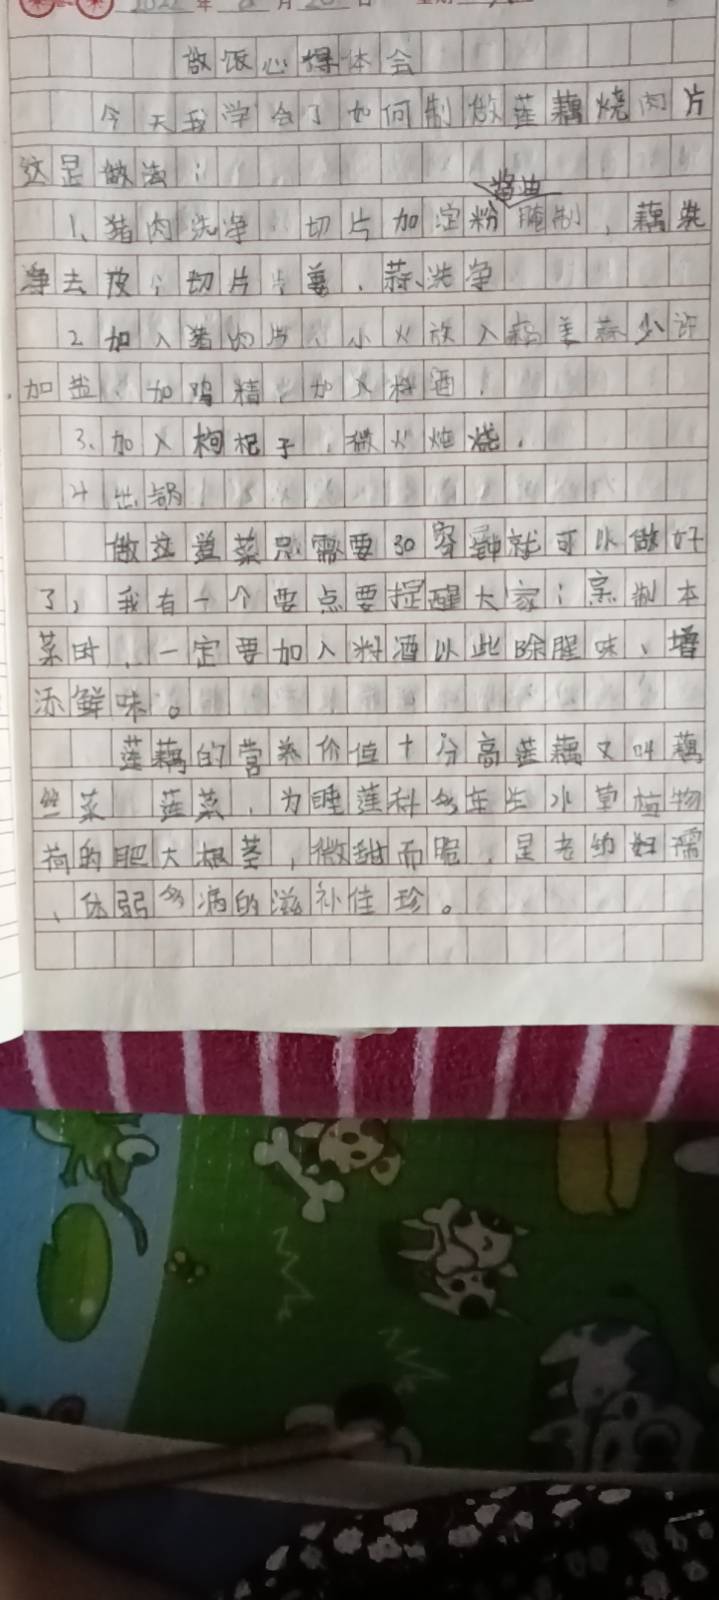 2022年8月20日 星期
做饭心得体会
今天我学会了如何制做莲藕烧肉片
这是做法：
酱油
1、猪肉洗净，切片加淀粉腌制，藕洗
净去皮，切片，姜、蒜洗净
2、加入猪肉片，小火放入藕姜蒜少许
加盐，加鸡精，加入料酒，
3、加入枸杞子，微火炖烧，
4 出锅
做这道菜只需要30分钟就可以做好
了，我有一个要点要提醒大家：烹制本
菜时，一定要加入料酒以此除腥味、增
添鲜味。
莲藕的营养价值十分高莲藕又叫藕
丝菜 莲菜，为睡莲科多年生水草植物
荷的肥大根茎，微甜而脆，是老幼妇孺
、体弱多病的滋补佳珍。